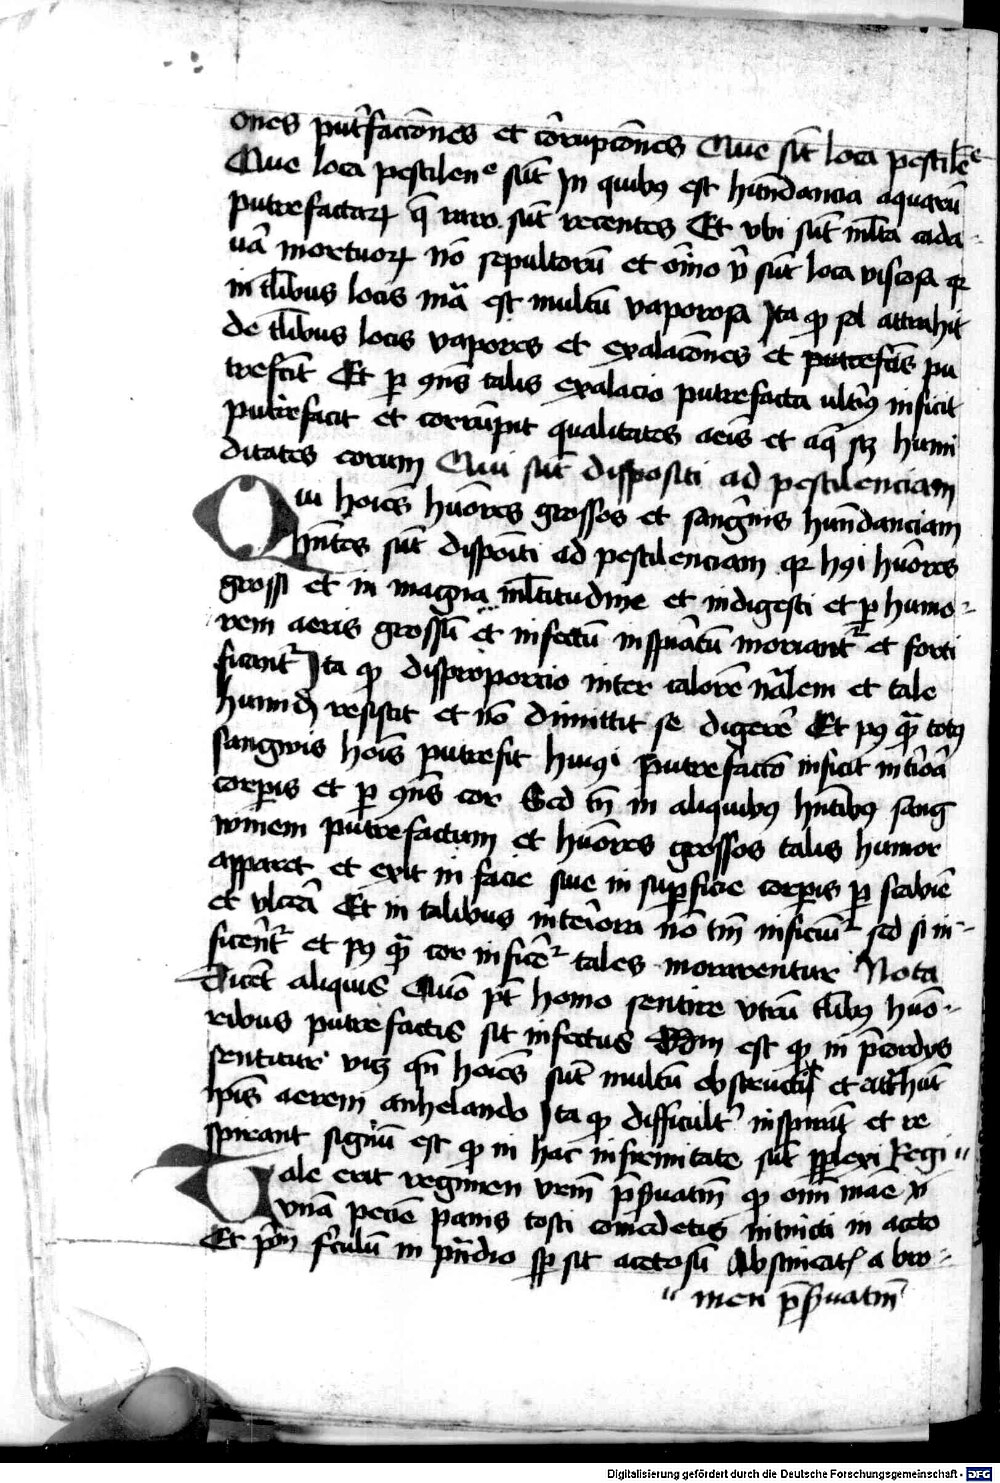 ones put̉faccōnes et cōrupcōnes Que sūt loca pestilēͤ
Que loca pestilenͤ sūt Jn quibꝰ est hūndancia aquarū
putrefactaꝝ q̄ raro sūt recentes Et vbi sūt ml̄ta cada-
uā mortuoꝝ nō sepultorū et oīno v̄ sūt loca viscosa qr
in tl̄ibus locis mā est multū vaporosa Jta ꝙ sol attrahit
de tl̄ibus locis vapores et exalacōnes et putrefcīs pu
trefcīt Et ꝑ ꝯn̄s talis exalacio putrefacta ultīꝰ inficit
put̉refacit et corrūpit qualitates aeīs et aq̄ sꝫ humi
ditates eorum Qui sūt dispositi ad pestilenciam
Qui hoīes hūores grossos et sangīnis hūndanciam
hn̄tes sūt dispoīti ad pestilenciam qr hꝯi hūores
grossi et in magna ml̄titudine et indigesti et ꝑ humo-
rem aeris grossū et infectū inspīatū moriant᷑ et forti
ficant᷑ Jta ꝙ disproporcio inter calorē nāalem et tale
humiđ resistit et nō dimittit se digerē Et pꝰ q̄ totꝰ
sangwis hoīs putrefit huiꝯi putrefacctō inficit int̉iōa
corpis et ꝑ ꝯn̄s cor Sed tn̄ in aliquibꝰ hn̄tibꝰ sang
winem putrefactum et hūores grossos talis humor
apparet et exit in facie siue in suꝑficie corpis ꝑ scabiē
et vlcera Et in talibus inteīora nō tm̄ inficiūt᷑ sed si in-
ficeȓnt᷑ et pꝰ q̄ cor inficēt᷑ tales morarentur Nota
Dicet aliquis Quō pt̄ homo sentire vtrū tl̄ibꝰ hūo-
ribus putrefactis sit infectus Dđm est ꝙ in p̄cordijs
sentitur viꝫ qn̄ hoīes sūt multū obstructi et att̉hūt
ip̄is aerem anhelando Jta ꝙ difficult᷑ inspirāt et re
spirant signū est ꝙ in hac infirmitate sūt ꝑplexi Regi"
Tale erit regimen vr̄m p̄ẜuatīm ꝙ oīm mae vi
vnā peciē panis tosti comedetis intincti in aceto
Et p̄m f̉culū in pn̄dio sꝑ sit acetosū Abstineat᷑ a bro-
" men p̄ẜuatīm